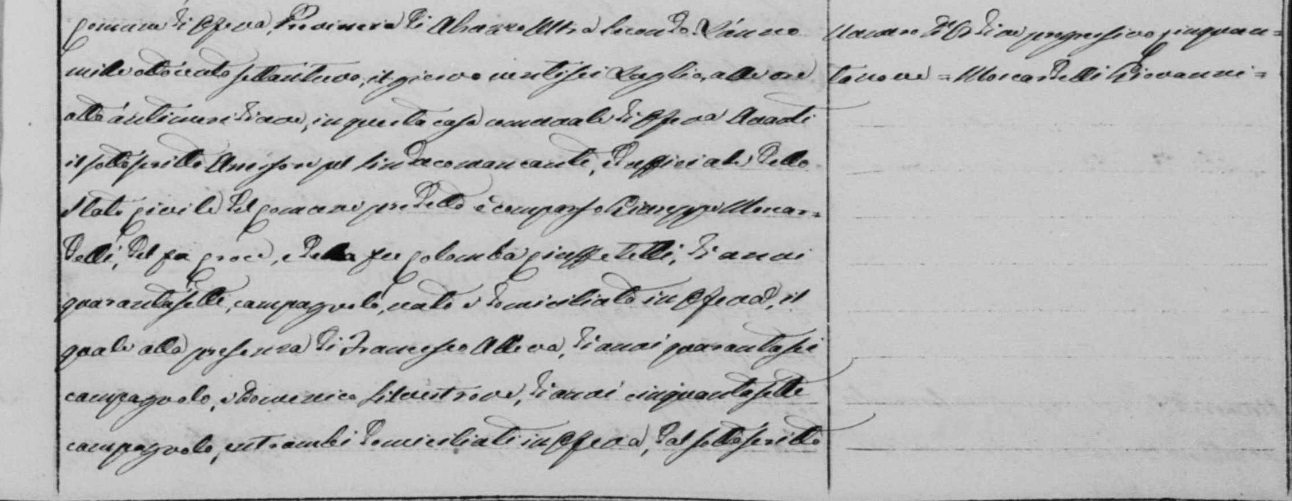 Comune di Ofena, Provincia di Abruzzo Ultra Secondo. L'anno
mille ottocento settantuno, il giorno ventisei Luglio, alle ore
otto antimeridiane, in questa casa comunale di Ofena Avanti
il sottoscritto Assessore pel Sindaco mancante, ed uffiziale dello
Stato civile del comune predetto è comparso Giuseppe Moscar=
delli, del fu Croce, e della fu Colomba, di anni
quarantasette, campagnolo, nato e domiciliato in Ofena, il
quale alla presenza di Francesco Alleva, di anni quarantasei
campagnolo, e Domenico Silvestrone, di anni cinquantasette
campagnolo, entrambi domiciliati in Ofena, dal sottoscritto
Numero d'Ordine progressivo cinquan=
tanove = Moscardelli Giovanni =